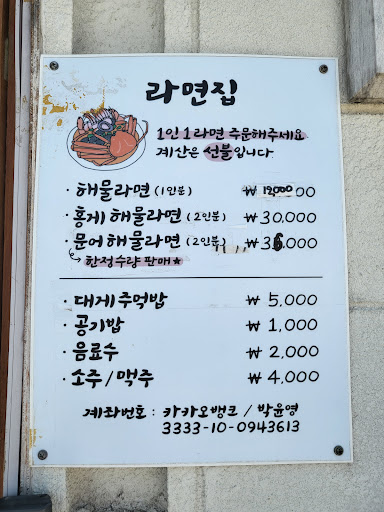 라면집
1인 1라면 주문해주세요
계산은 선불입니다.
· 해물라면 (1인분) ₩ 12,000 00
· 홍게 해물라면 (2인분) ₩ 30,000
· 문어 해물라면 (2인분) ₩ 36,000
↳ 한정수량 판매★
· 대게 주먹밥 ₩ 5,000
· 공기밥 ₩ 1,000
· 음료수 ₩ 2,000
· 소주 / 맥주 ₩ 4,000
계좌번호 : 카카오뱅크 / 박윤영
3333-10-0943613